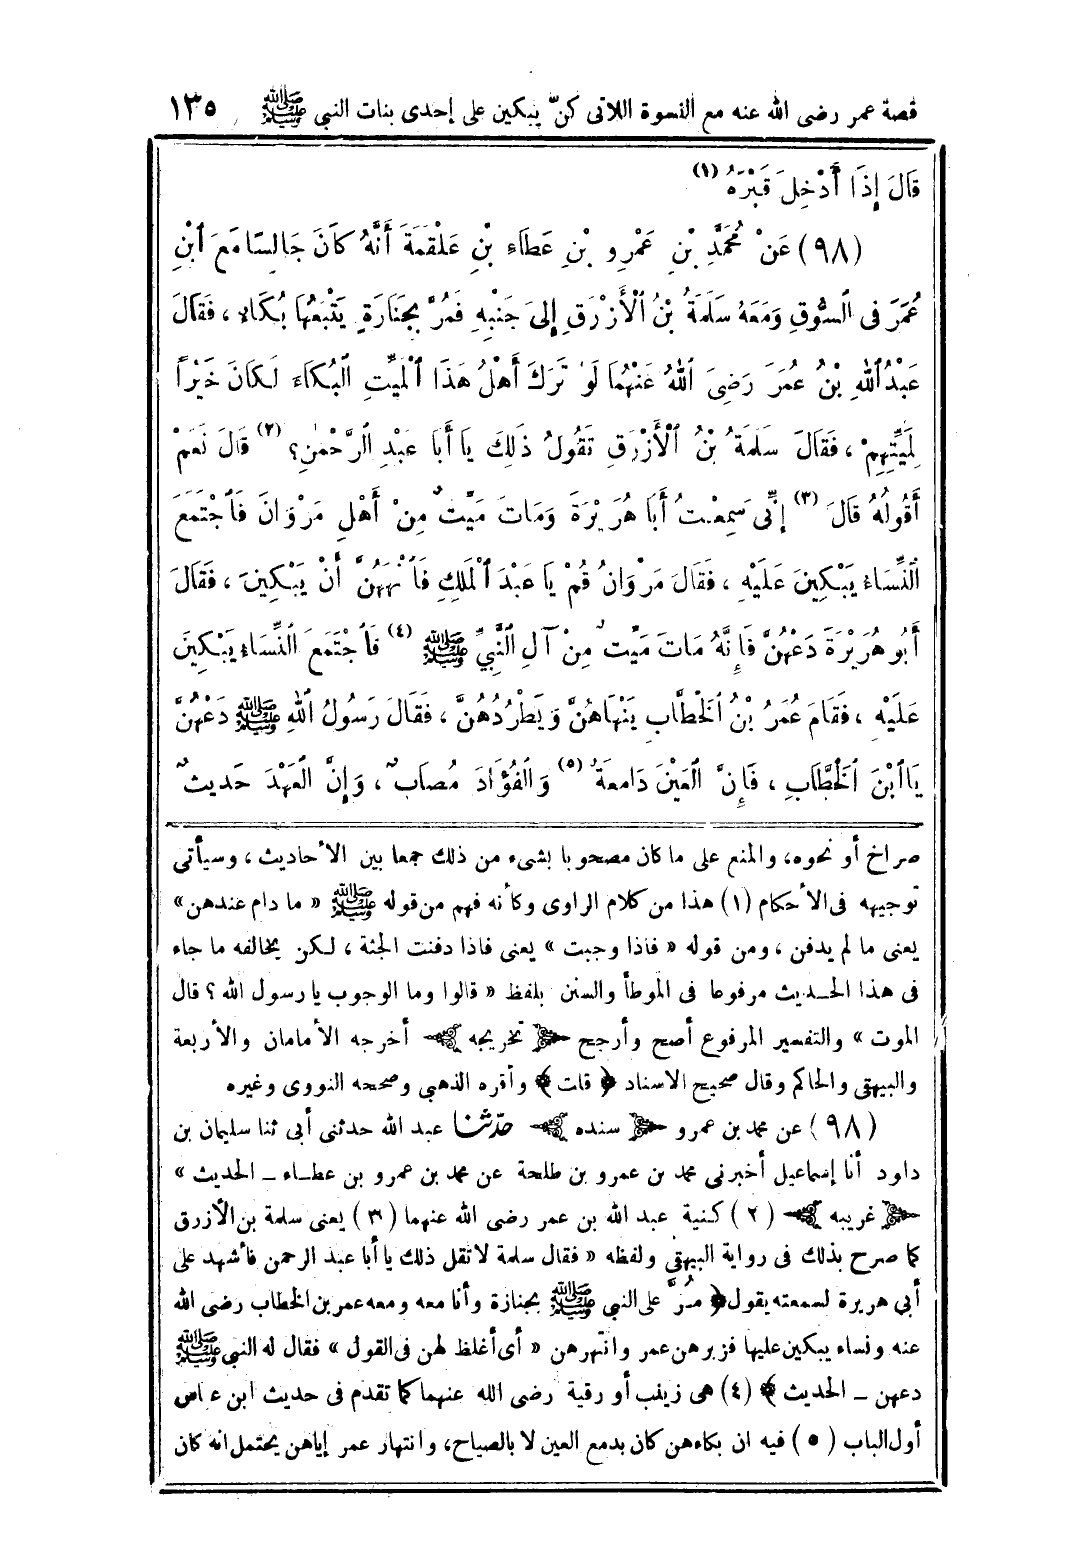 قصة عمر رضى الله عنه مع النسوة اللاتى كنّ يبكين على إحدى بنات النبي ﷺ ١٣٥
قَالَ إِذَا أُدْخِلَ قَبْرَهُ (١)
(٩٨) عَنْ مُحَمَّدِ بْنِ عَمْرِو بْنِ عَطَاءِ بْنِ عَلْقَمَةَ أَنَّهُ كَانَ جَالِسًا مَعَ ابْنِ
عُمَرَ فِى السُّوقِ وَمَعَهُ سَلَمَةُ بْنُ الْأَزْرَقِ إِلَى جَنْبِهِ فَمُرَّ بِجَنَازَةٍ يَتْبَعُهَا بُكَاءٌ ، فَقَالَ
عَبْدُ اللهِ بْنُ عُمَرَ رَضِىَ اللهُ عَنْهُمَا لَوْ تَرَكَ أَهْلُ هَذَا الْمَيِّتِ الْبُكَاءَ لَكَانَ خَيْرًا
لِمَيِّتِهِمْ ، فَقَالَ سَلَمَةُ بْنُ الْأَزْرَقِ تَقُولُ ذَلِكَ يَا أَبَا عَبْدِ الرَّحْمٰنِ؟ (٢) قَالَ نَعَمْ
أَقُولُهُ قَالَ (٣) إِنِّى سَمِعْتُ أَبَا هُرَيْرَةَ وَمَاتَ مَيِّتٌ مِنْ أَهْلِ مَرْوَانَ فَاجْتَمَعَ
النِّسَاءُ يَبْكِينَ عَلَيْهِ ، فَقَالَ مَرْوَانُ قُمْ يَا عَبْدَ الْمَلِكِ فَانْهَهُنَّ أَنْ يَبْكِينَ ، فَقَالَ
أَبُو هُرَيْرَةَ دَعْهُنَّ فَإِنَّهُ مَاتَ مَيِّتٌ مِنْ آلِ النَّبِيِّ ﷺ (٤) فَاجْتَمَعَ النِّسَاءُ يَبْكِينَ
عَلَيْهِ ، فَقَامَ عُمَرُ بْنُ الْخَطَّابِ يَنْهَاهُنَّ وَيَطْرُدُهُنَّ ، فَقَالَ رَسُولُ اللهِ ﷺ دَعْهُنَّ
يَا ابْنَ الْخَطَّابِ ، فَإِنَّ الْعَيْنَ دَامِعَةٌ (٥) وَالْفُؤَادَ مُصَابٌ ، وَإِنَّ الْعَهْدَ حَدِيثٌ
صراخ أو نحوه، والمنع على ما كان مصحوبا بشىء من ذلك جمعا بين الأحاديث ، وسيأتى
توجيهه فى الأحكام (١) هذا من كلام الراوى وكأنه فهم من قوله ﷺ « ما دام عندهن »
يعنى ما لم يدفن ، ومن قوله « فاذا وجبت » يعنى فاذا دفنت الجثة ، لكن يخالفه ما جاء
فى هذا الحديث مرفوعا فى الموطأ والسنن بلفظ « قالوا وما الوجوب يا رسول الله ؟ قال
الموت » والتفسير المرفوع أصح وأرجح ﴿ تخريجه ﴾ أخرجه الأمامان والأربعة
والبيهقى والحاكم وقال صحيح الاسناد ﴿ قلت ﴾ وأقره الذهبي وصححه النووى وغيره
(٩٨) عن محمد بن عمرو ﴿ سنده ﴾ حدّثنا عبد الله حدثنى أبى ثنا سليمان بن
داود أنا إسماعيل أخبرنى محمد بن عمرو بن طلحة عن محمد بن عمرو بن عطاء ــ الحديث »
﴿ غريبه ﴾ (٢) كنية عبد الله بن عمر رضى الله عنهما (٣) يعنى سلمة بن الأزرق
كما صرح بذلك فى رواية البيهقى ولفظه « فقال سلمة لا تقل ذلك يا أبا عبد الرحمن فأشهد على
أبى هريرة لسمعته يقول ﴿ مُرَّ على النبي ﷺ بجنازة وأنا معه ومعه عمر بن الخطاب رضى الله
عنه ونساء يبكين عليها فزبرهن عمر وانتهرهن « أى أغلظ لهن فى القول » فقال له النبي ﷺ
دعهن ــ الحديث ﴾ (٤) هى زينب أو رقية رضى الله عنهما كما تقدم فى حديث ابن عباس
أول الباب (٥) فيه ان بكاءهن كان بدمع العين لا بالصياح، وانتهار عمر إياهن يحتمل انه كان